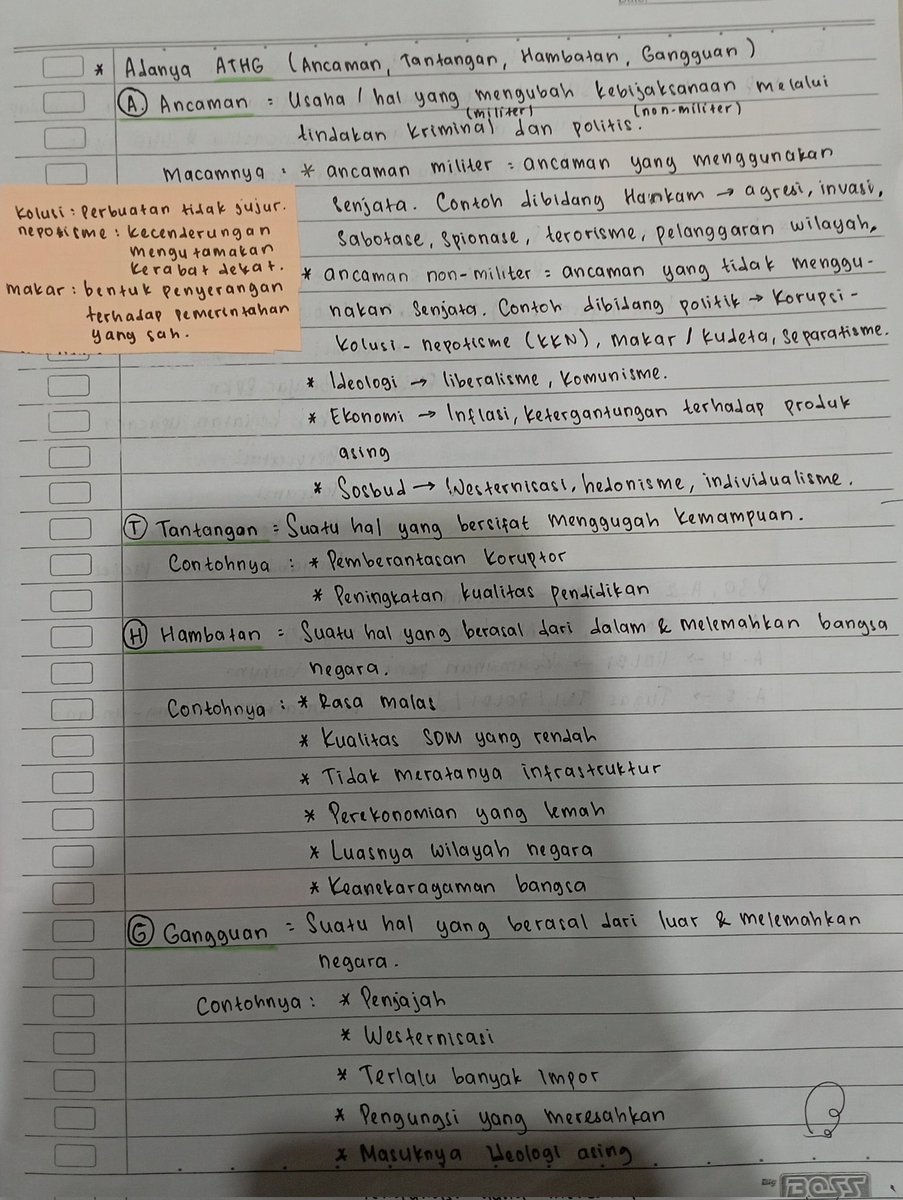 * Adanya ATHG (Ancaman, Tantangan, Hambatan, Gangguan)
A. Ancaman = Usaha / hal yang mengubah kebijaksanaan melalui
(militer) (non-militer)
tindakan kriminal dan politis.
Macamnya : * ancaman militer = ancaman yang menggunakan
senjata. Contoh dibidang Hankam → agresi, invasi,
sabotase, spionase, terorisme, pelanggaran wilayah.
* ancaman non-militer = ancaman yang tidak menggu-
nakan senjata. Contoh dibidang politik → Korupsi -
kolusi - nepotisme (KKN), makar / kudeta, separatisme.
kolusi : perbuatan tidak jujur.
nepotisme : kecenderungan
mengutamakan
kerabat dekat.
makar : bentuk penyerangan
terhadap pemerintahan
yang sah.
* Ideologi → liberalisme, komunisme.
* Ekonomi → Inflasi, ketergantungan terhadap produk
asing
* Sosbud → Westernisasi, hedonisme, individualisme.
T Tantangan = Suatu hal yang bersifat menggugah kemampuan.
Contohnya : * Pemberantasan koruptor
* Peningkatan kualitas pendidikan
H Hambatan = Suatu hal yang berasal dari dalam & melemahkan bangsa
negara.
Contohnya : * Rasa malas
* Kualitas SDM yang rendah
* Tidak meratanya infrastruktur
* Perekonomian yang lemah
* Luasnya wilayah negara
* Keanekaragaman bangsa
G Gangguan = Suatu hal yang berasal dari luar & melemahkan
negara.
Contohnya : * Penjajah
* Westernisasi
* Terlalu banyak Impor
* Pengungsi yang meresahkan
* Masuknya Ideologi asing
Big BOSS